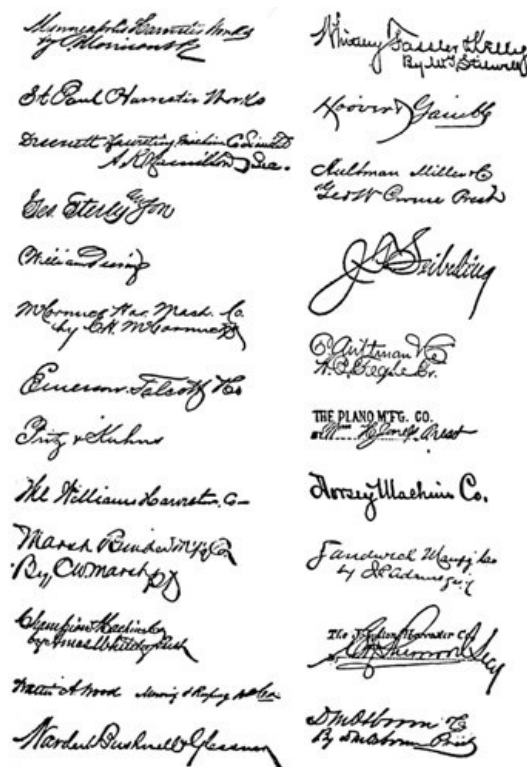 Minneapolis Harvester Works
by
St Paul Harvester Works
Geo. Esterly & Son
William Deering
McCormick Har. Mach. Co.
by C.H. McCormick
Emerson, Talcott & Co
Fritz & Kuhns
The Williams Harvester Co
Marsh Binder M'f'g Co
By, C.W. Marsh
Champion Machine Co
by Amos Whiteley Prest
Walter A Wood Mowing & Reaping M Co
Warder Bushnell & Glessner
Whitney Fassler & Kelly
By Stilwell
Hoover & Gamble
Aultman Miller & Co
Geo W Crouse Prest
J F Seiberling
C. Aultman & Co
THE PLANO M'F'G. CO.
By H. Jones Prest
Dorsey Machine Co.
Sandwich Manfg Co
by J P Adams
The Johnston Harvester Co
Sherman Secy
D M Osborne & Co
By D M Osborne Prest